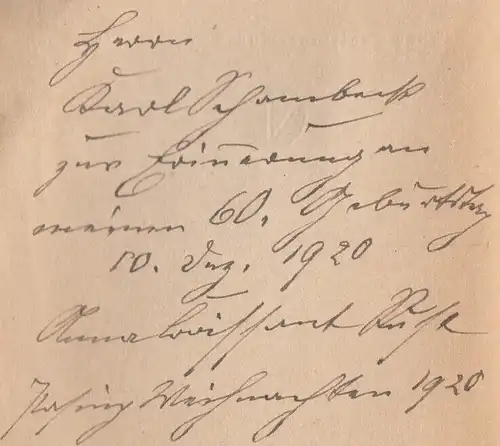 Herrn
Karl Schambeck
zur Erinnerung an
meinen 60. Geburtstag
10. Dez. 1920
Anna Croissant Rust
Pasing Weihnachten 1920